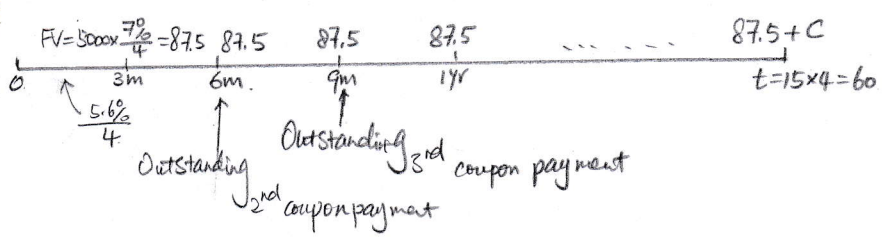 FV=5000×7%/4=87.5 87.5 87.5 87.5 ... ... 87.5+C
0 3m 6m. 9m 1yr t=15×4=60
5.6%/4
Outstanding 2nd coupon payment
Outstanding 3rd coupon payment